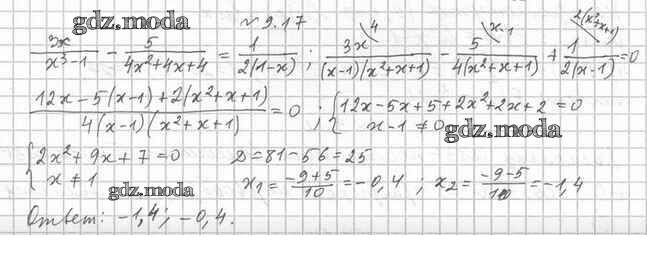 gdz.moda
№ 9.17
3x/(x³-1) - 5/(4x²+4x+4) = 1/(2(1-x)) ; 3x/((x-1)(x²+x+1)) \4 - 5/(4(x²+x+1)) \x-1 + 1/(2(x-1)) \2(x²+x+1) = 0
(12x-5(x-1)+2(x²+x+1))/(4(x-1)(x²+x+1)) = 0 ; { 12x-5x+5+2x²+2x+2 = 0
x-1 ≠ 0 gdz.moda
{ 2x²+9x+7=0 D=81-56=25
x ≠ 1 x₁ = (-9+5)/10 = -0,4 ; x₂ = (-9-5)/10 = -1,4
gdz.moda
Ответ: -1,4; -0,4.